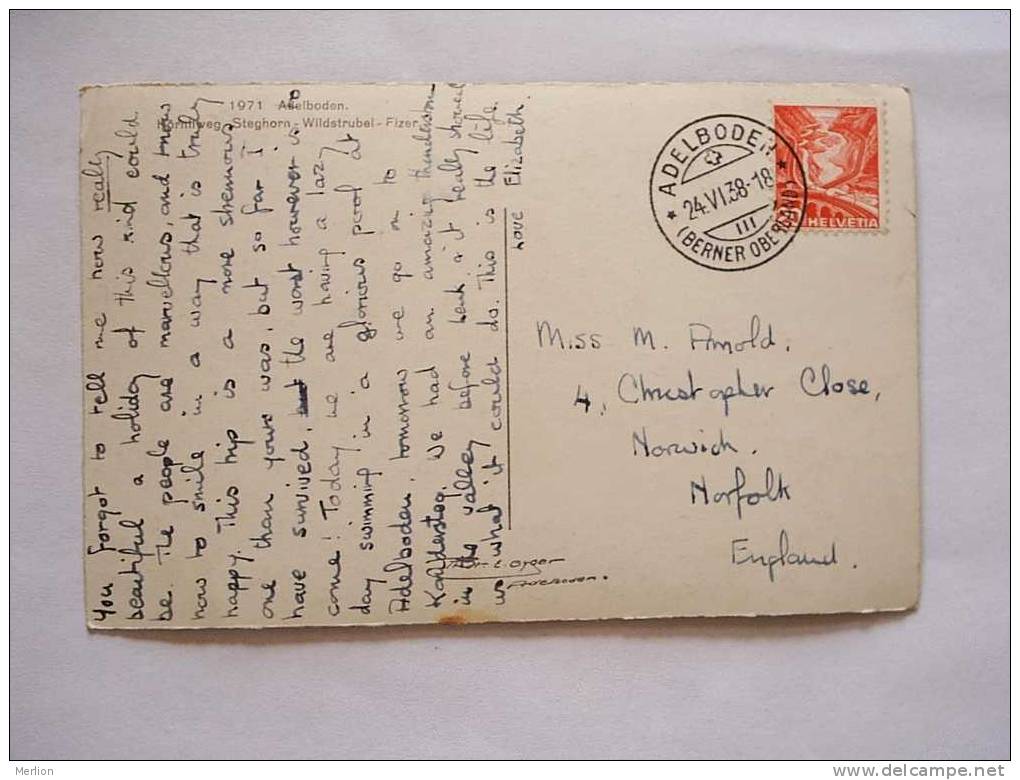 1971 Adelboden.
Steghorn - Wildstrubel - Fizer
You forgot to tell me how really
beautiful a holiday of this kind could
be. The people are marvellous, and know
how to smile in a way that is truly
happy. This trip is a more strenuous
one than yours was, but so far I
have survived, the worst however is to
come! Today we are having a lazy
day swimming in a glorious pool at
Adelboden, tomorrow we go on to
Kandersteg. We had an amazing thunderstorm
in the valley before bed & it really showed
us what it could do. This is the life.
Love Elizabeth.
ADELBODEN
24.VI.38-18
III
(BERNER OBERLAND)
HELVETIA
Miss M. Arnold.
4, Christopher Close,
Norwich.
Norfolk
England.
Adelboden.
Merlion
www.delcampe.net